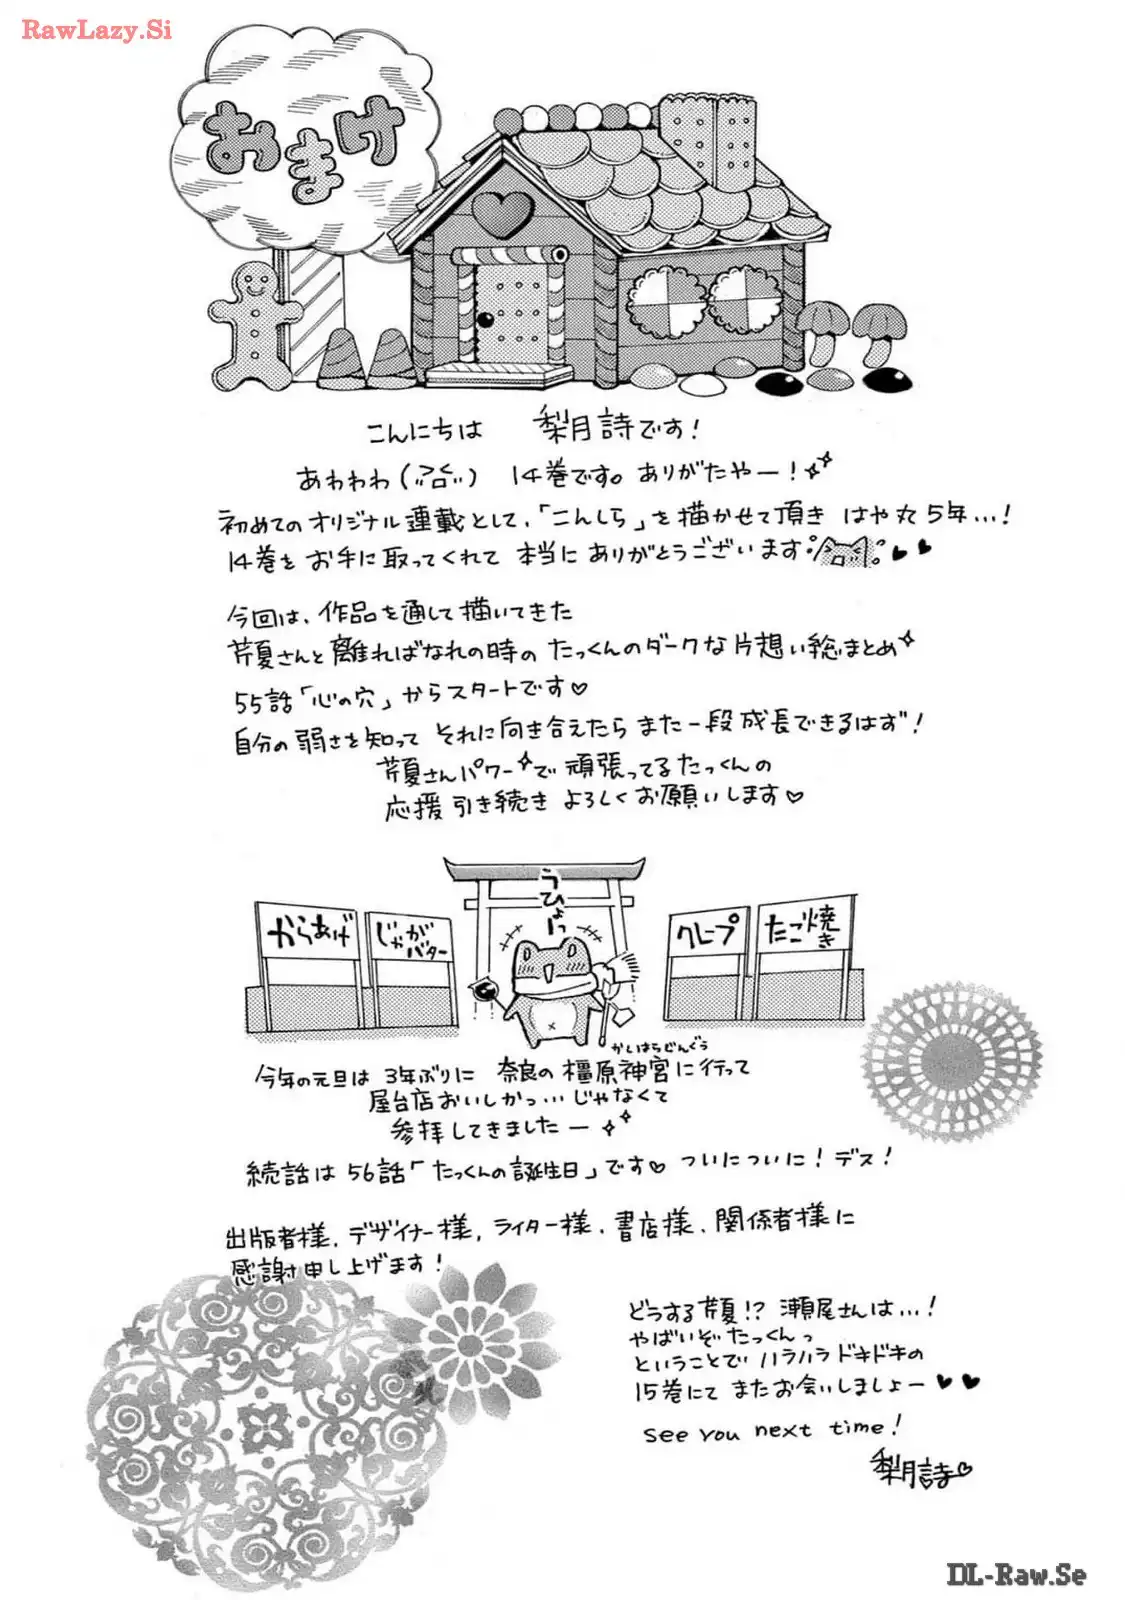 RawLazy.Si
おまけ
こんにちは 梨月詩です！
あわわわ 14巻です。ありがたやー！
初めてのオリジナル連載として、「こんしら」を描かせて頂き はや丸5年…！
14巻をお手に取ってくれて 本当にありがとうございます
今回は、作品を通して描いてきた
芹夏さんと離ればなれの時の たっくんのダークな片想い総まとめ
55話「心の穴」からスタートです♡
自分の弱さを知って それに向き合えたら また一段成長できるはず！
芹夏さんパワーで頑張ってるたっくんの
応援 引き続き よろしくお願いします♡
うひょーっ
からあげ
じゃがバター
クレープ
たこ焼き
かしはらじんぐう
今年の元旦は 3年ぶりに 奈良の橿原神宮に行って
屋台店おいしかっ…じゃなくて
参拝してきましたー
続話は 56話「たっくんの誕生日」です♡ ついについに！デス！
出版者様、デザイナー様、ライター様、書店様、関係者様に
感謝申し上げます！
どうする芹夏!? 瀬尾さんは…！
やばいぞたっくんっ
ということで ハラハラドキドキの
15巻にて またお会いしましょー♥♥
see you next time!
梨月詩♡
DL-Raw.Se